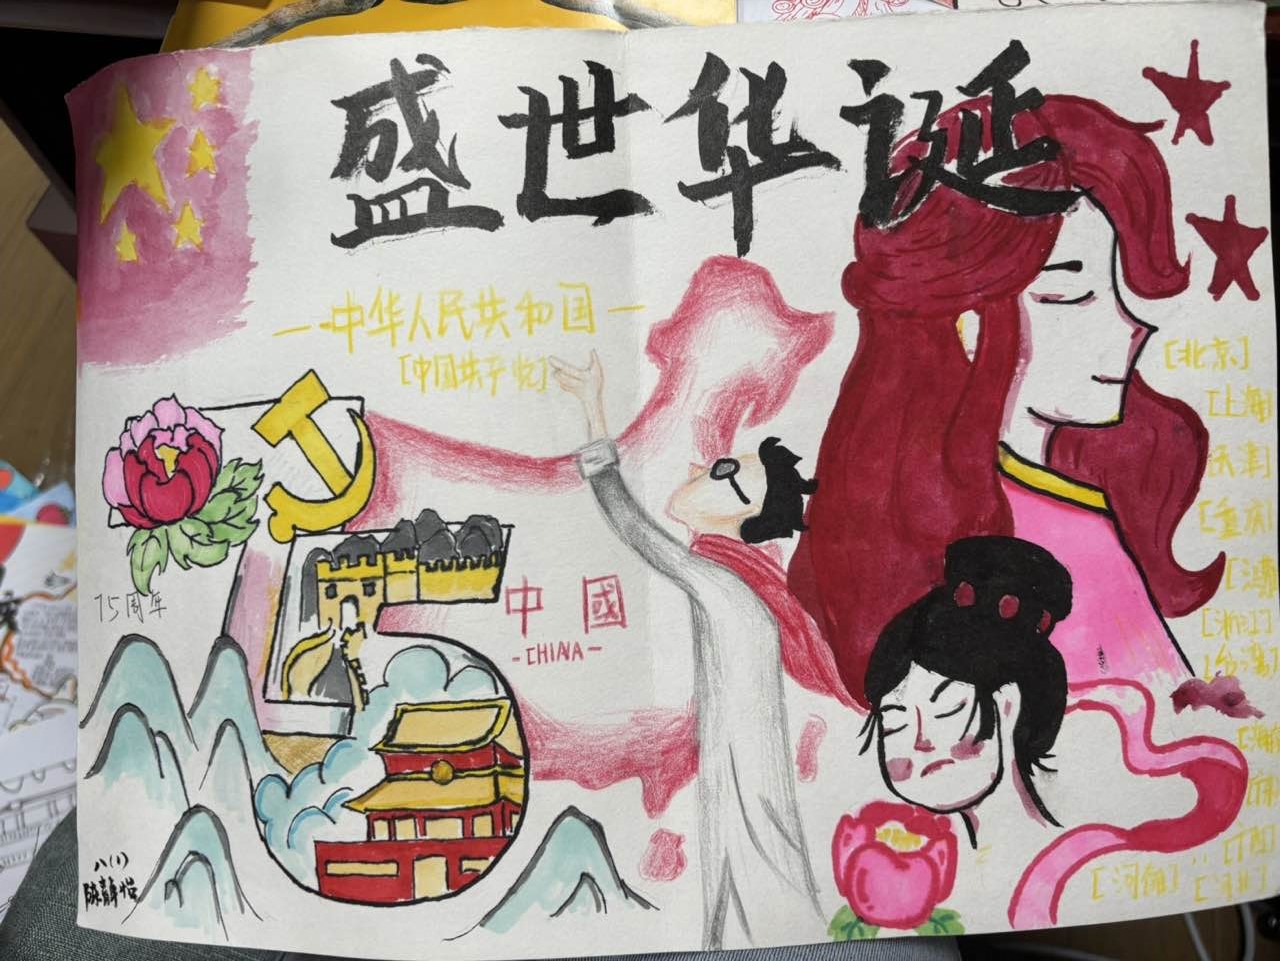 盛世华诞
—中华人民共和国—
[中国共产党]
75周年
中國
-CHINA-
[北京]
[上海]
天津]
[重庆]
[浙江]
[台湾]
[河南]
八(1)
陈静怡